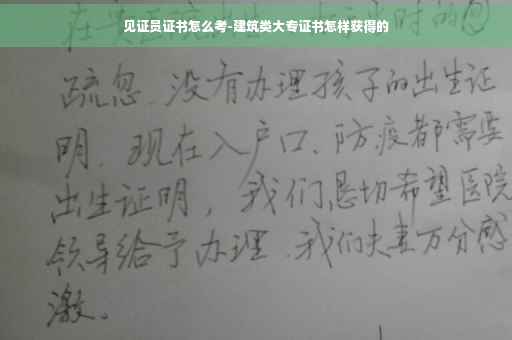 见证员证书怎么考-建筑类大专证书怎样获得的
在 时的
疏忽.没有办理孩子的出生证
明.现在入户口、防疫都需要
出生证明，我们恳切希望医院
领导给予办理.我们夫妻万分感
激。